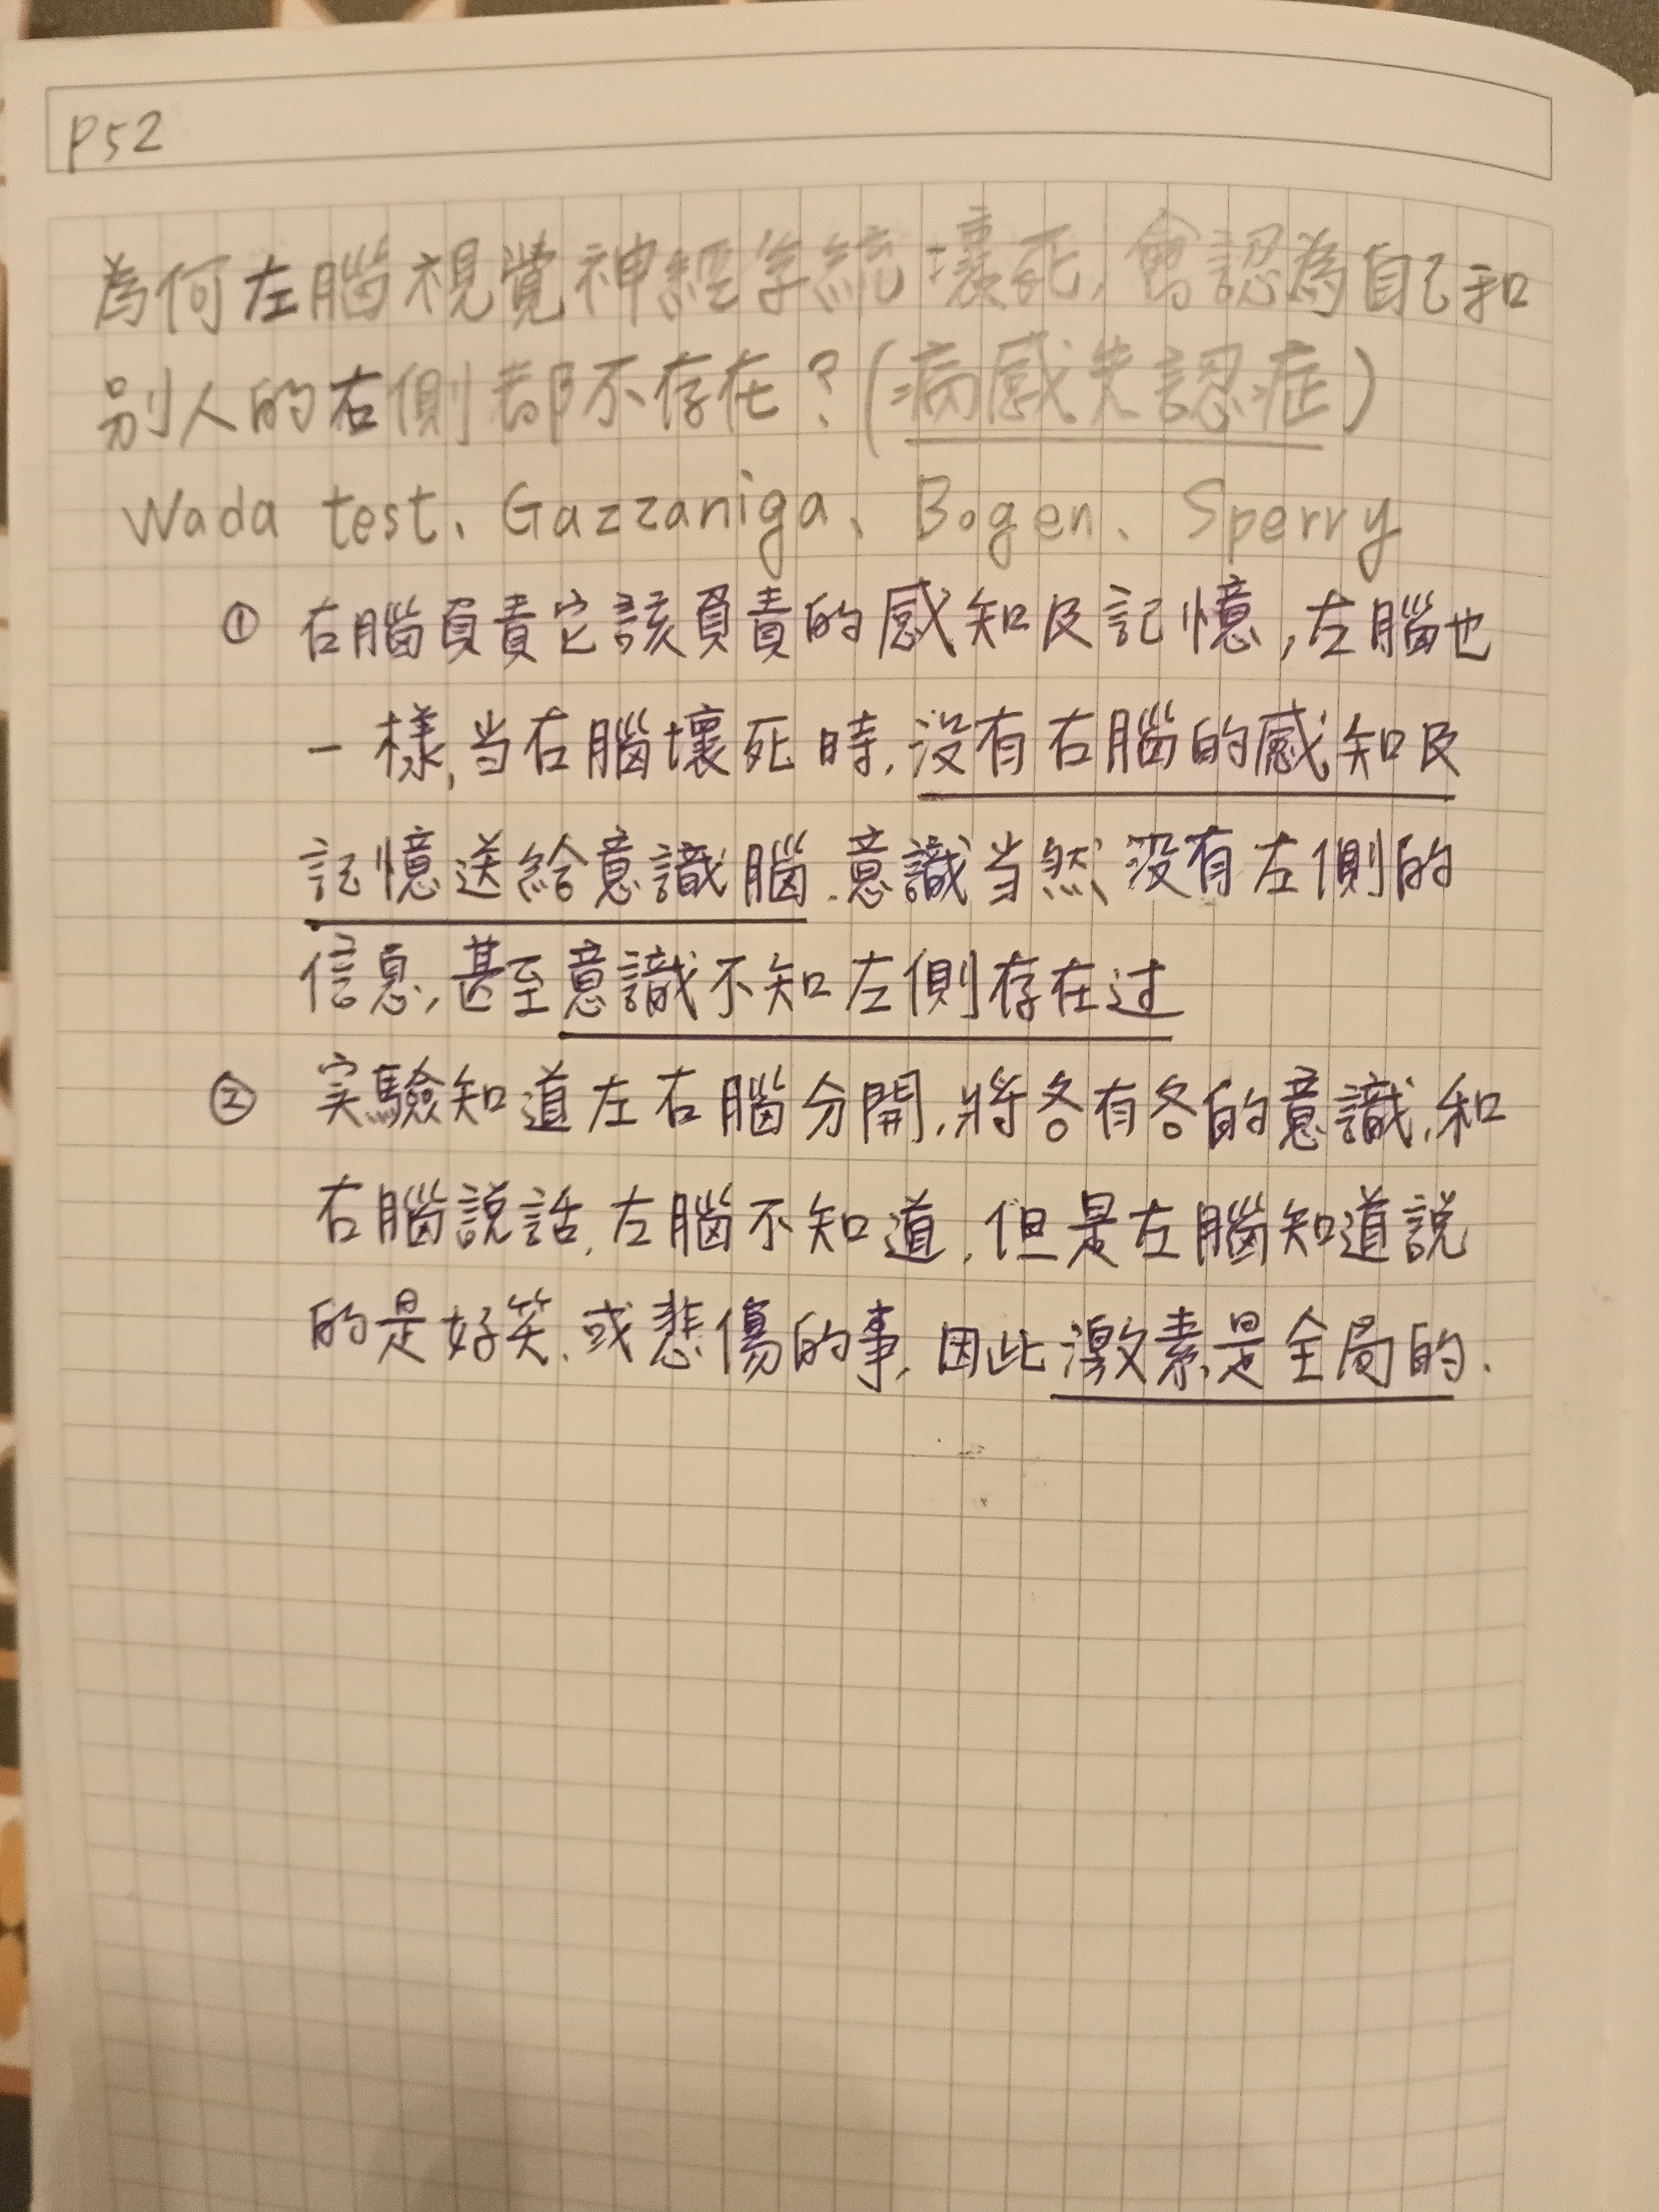 P52
為何左腦視覚神經系統壞死,會認為自己和
別人的右側都不存在?(病感失認症)
Wada test、Gazzaniga、Bogen、Sperry
① 右腦負責它該負責的感知及記憶,左腦也
一樣,当右腦壞死時,没有右腦的感知及
記憶送給意識腦.意識当然没有左側的
信息,甚至意識不知左側存在过
② 実驗知道左右腦分開,將各有各的意識,和
右腦説話,左腦不知道,但是左腦知道説
的是好笑.或悲傷的事,因此激素是全局的.